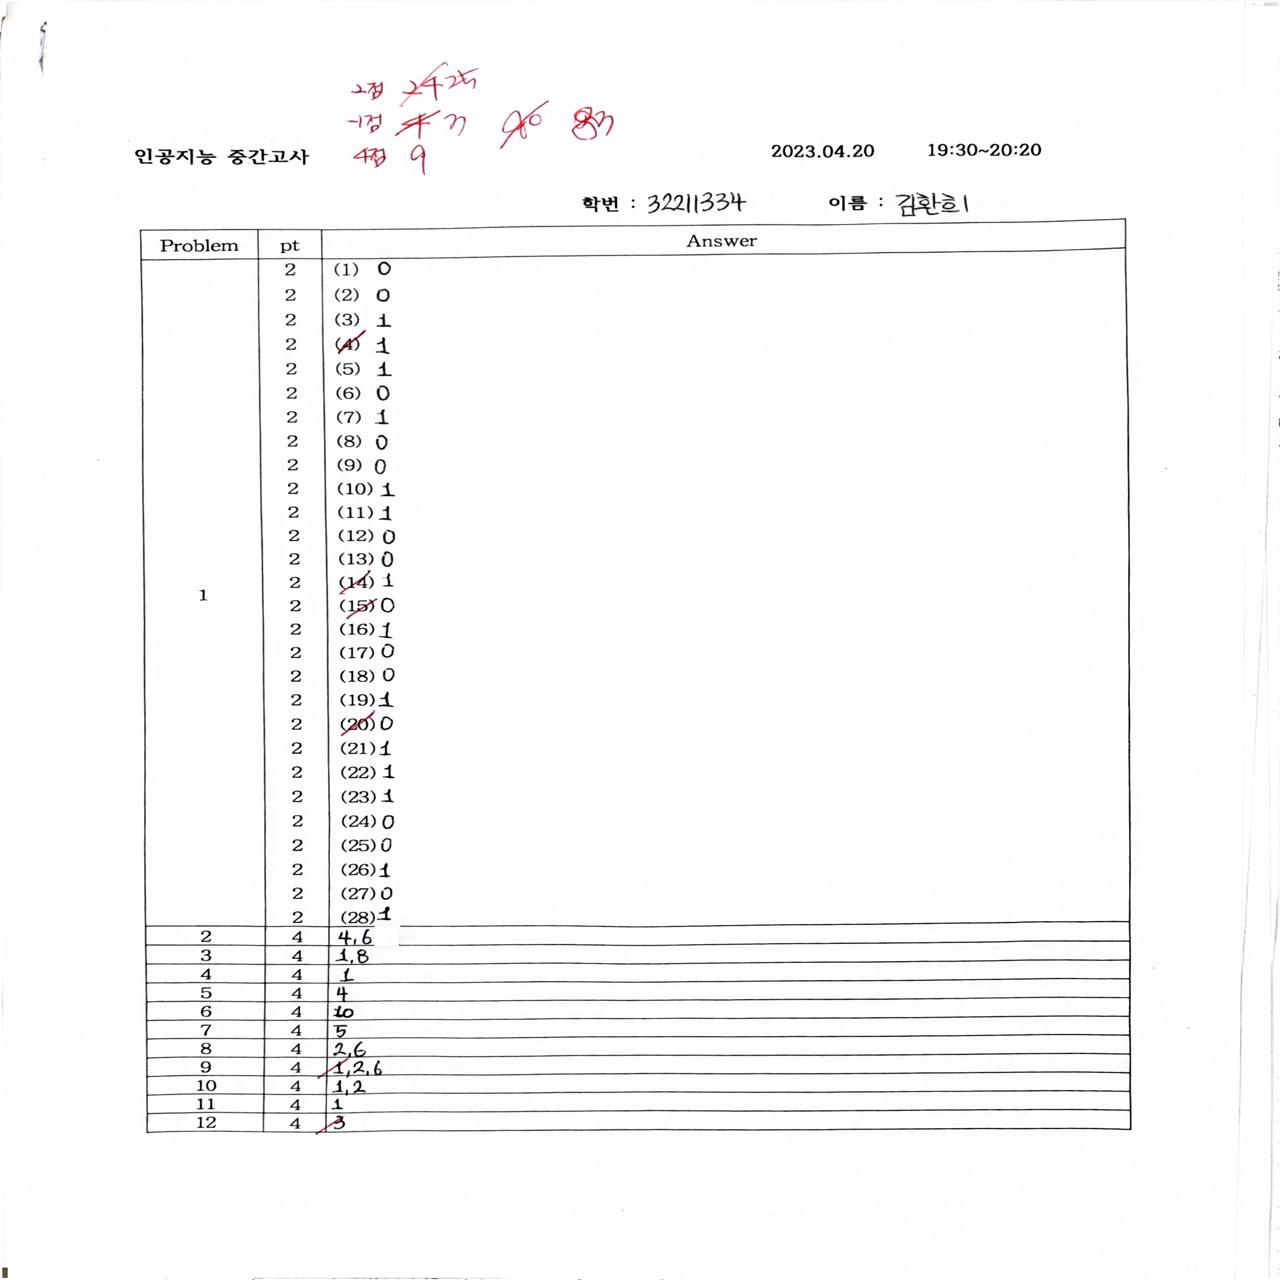 2점 24 25
-1점 4 3 90 83
인공지능 중간고사 4점 9 2023.04.20 19:30~20:20
학번 : 32211334 이름 : 김환희
Problem pt Answer
2 (1) 0
2 (2) 0
2 (3) 1
2 (4) 1
2 (5) 1
2 (6) 0
2 (7) 1
2 (8) 0
2 (9) 0
2 (10) 1
2 (11) 1
2 (12) 0
2 (13) 0
2 (14) 1
1
2 (15) 0
2 (16) 1
2 (17) 0
2 (18) 0
2 (19) 1
2 (20) 0
2 (21) 1
2 (22) 1
2 (23) 1
2 (24) 0
2 (25) 0
2 (26) 1
2 (27) 0
2 (28) 1
2 4 4,6
3 4 1,8
4 4 1
5 4 4
6 4 10
7 4 5
8 4 2,6
9 4 1,2,6
10 4 1,2
11 4 1
12 4 3